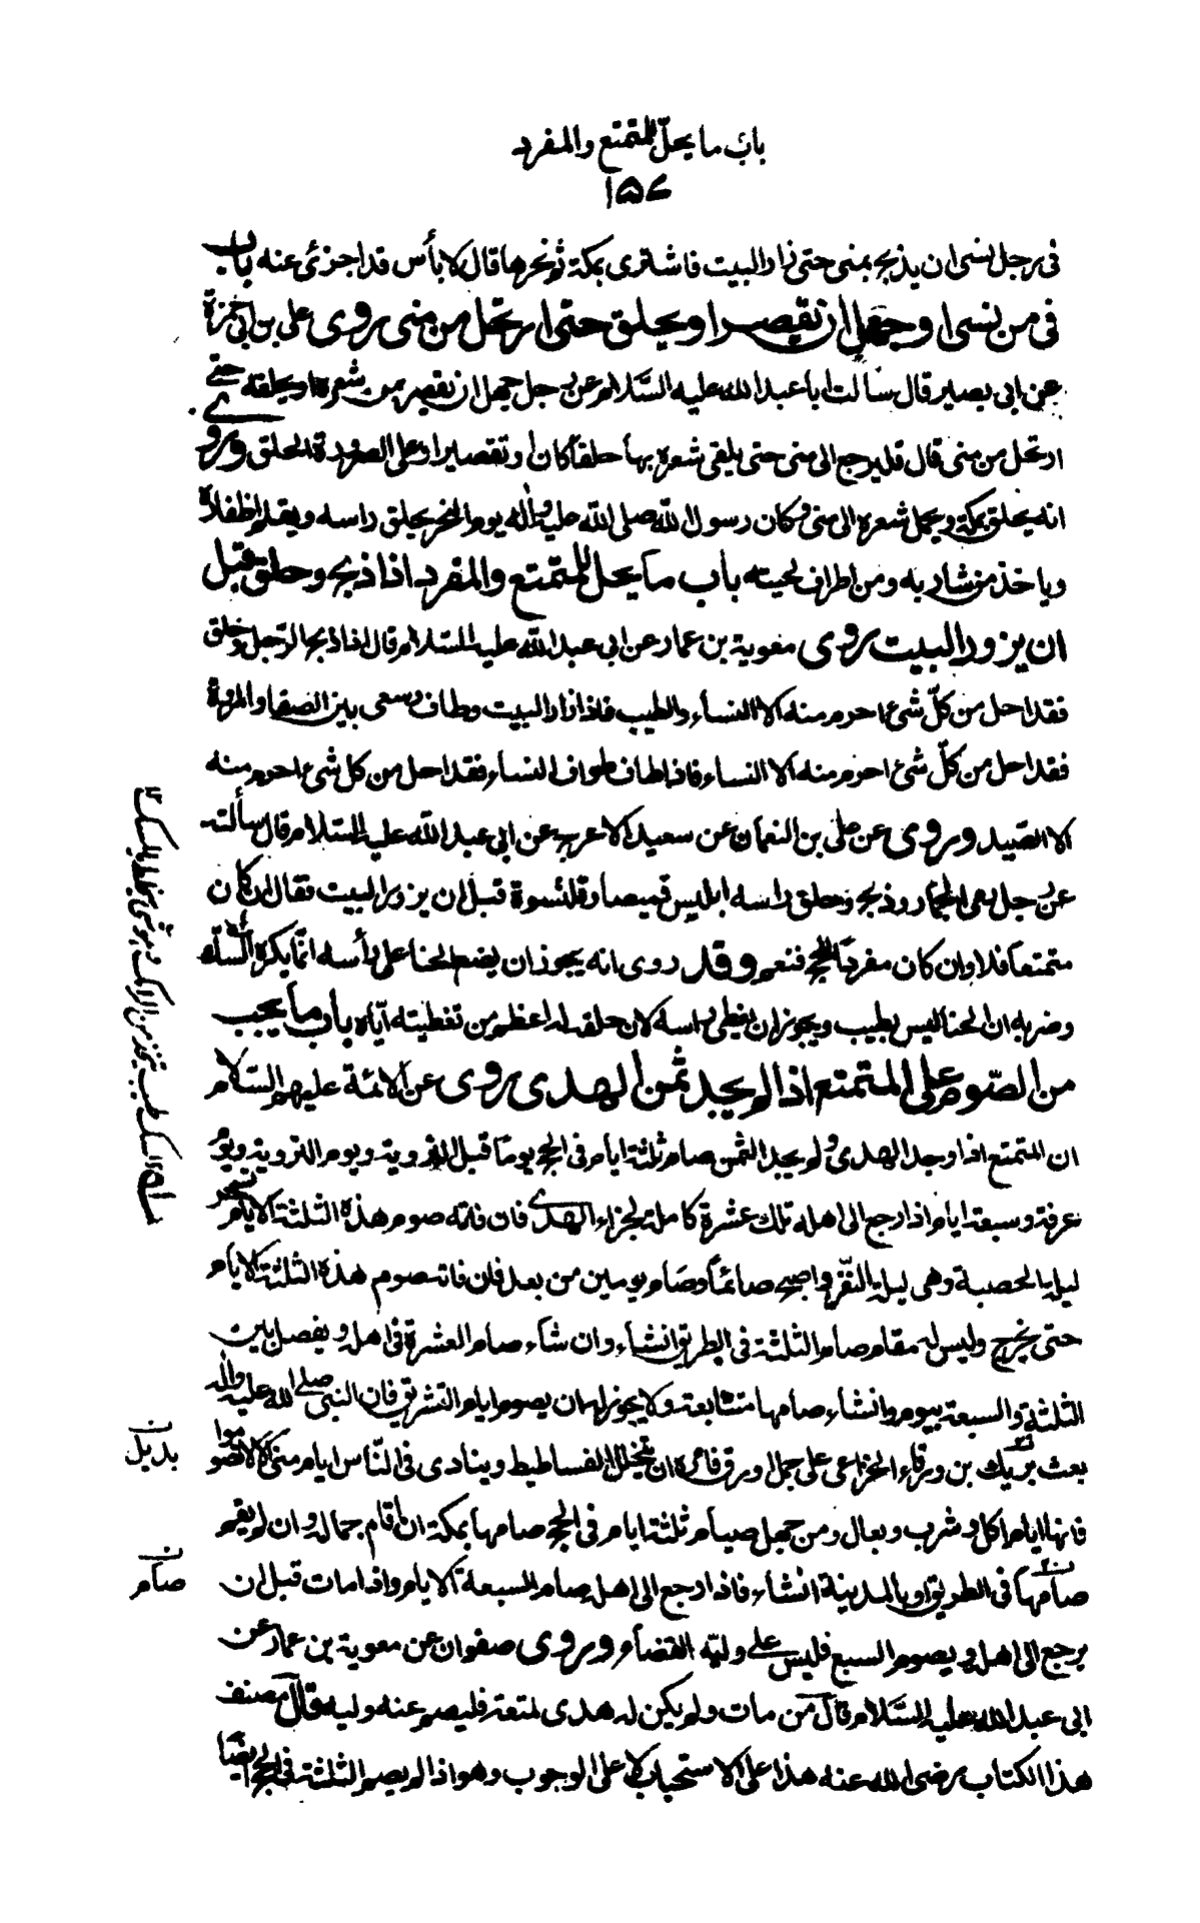 باب ما يحلّ للمتمتع والمفرد
١٥٧
فى رجل نسى ان يذبح بمنى حتى زار البيت فاشترى بمكة ثم نحرها قال لا بأس قد اجزئ عنه باب
فى من نسى او جهل ان يقصر او يحلق حتى ارتحل من منى روى على بن ابى حمزة
عن ابى بصير قال سألت ابا عبد الله عليه السّلام عن رجل جهل ان يقصر من شعره او يحلقه حتى
ارتحل من منى قال فليرجع الى منى حتى يلقى شعره بها حلقا كان او تقصيرا وعلى الصرورة الحلق وروى
انه يحلق بمكة ويحمل شعره الى منى وكان رسول الله صلى الله عليه واله يوم النحر يحلق راسه ويقلم اظفاره
وياخذ من شاربه ومن اطراف لحيته باب ما يحل للمتمتع والمفرد اذا ذبح وحلق قبل
ان يزور البيت روى معوية بن عمار عن ابى عبد الله عليه السلام قال اذا ذبح الرجل وحلق
فقد احل من كلّ شئ احرم منه الا النساء والطيب فاذا زار البيت وطاف وسعى بين الصفا والمروة
فقد احل من كلّ شئ احرم منه الا النساء فاذا طاف طواف النساء فقد احل من كل شئ احرم منه
الا الصّيد وروى عن على بن النعمان عن سعيد الاعرج عن ابى عبد الله عليه السلام قال سألته
عن رجل رمى الجمار وذبح وحلق راسه ايلبس قميصا وقلنسوة قبل ان يزور البيت فقال ان كان
متمتعا فلا وان كان مفردا للحج فنعم وقد روى انه يجوز ان يضع الحنا على رأسه انما يكره السك
وضربه ان الحنا ليس بطيب ويجوز ان يغطى راسه لان حلقه له اعظم من تغطيته ايّاه باب ما يجب
من الصّوم على المتمتع اذا لم يجد ثمن الهدى روى عن الائمة عليهم السّلام
ان المتمتع اذا وجد الهدى ولم يجد الثمن صام ثلثة ايام فى الحج يوما قبل التروية ويوم التروية ويوم
عرفة وسبعة ايام اذا رجع الى اهله تلك عشرة كاملة لجزاء الهدى فان فاته صوم هذه الثلثة الايام تسحر
ليلة الحصبة وهى ليلة النفر واصبح صائما وصام يومين من بعد فان فاته صوم هذه الثلثة الايام
حتى يخرج وليس له مقام صام الثلثة فى الطريق انشاء وان شاء صام العشرة فى اهله ويفصل بين
الثلثة والسبعة بيوم وانشاء صامها متتابعة ولا يجوز له ان يصوم ايام التشريق فان النبى صلى الله عليه واله
بعث بن ورقاء الخزاعى على جمل اورق فامره ان يتخلل الفساطيط وينادى فى النّاس ايام منى الا لا تصوموا
فانها ايام اكل وشرب وبعال ومن جهل صيام ثلثة ايام فى الحج صامها بمكة ان اقام جماله وان لم يقم
صامها فى الطريق او بالمدينة انشاء فاذا رجع الى اهله صام السبعة الايام واذا مات قبل ان
يرجع الى اهله ويصوم السبع فليس على وليّه القضاء وروى صفوان عن معوية بن عمار عن
ابى عبد الله عليه السّلام قال من مات ولم يكن له هدى لمتعة فليصم عنه وليه قال مصنف
هذا الكتاب رضى الله عنه هذا على الاستحباب لا على الوجوب وهو اذا لم يصم الثلثة فى الحج ايضا
بديل
صام